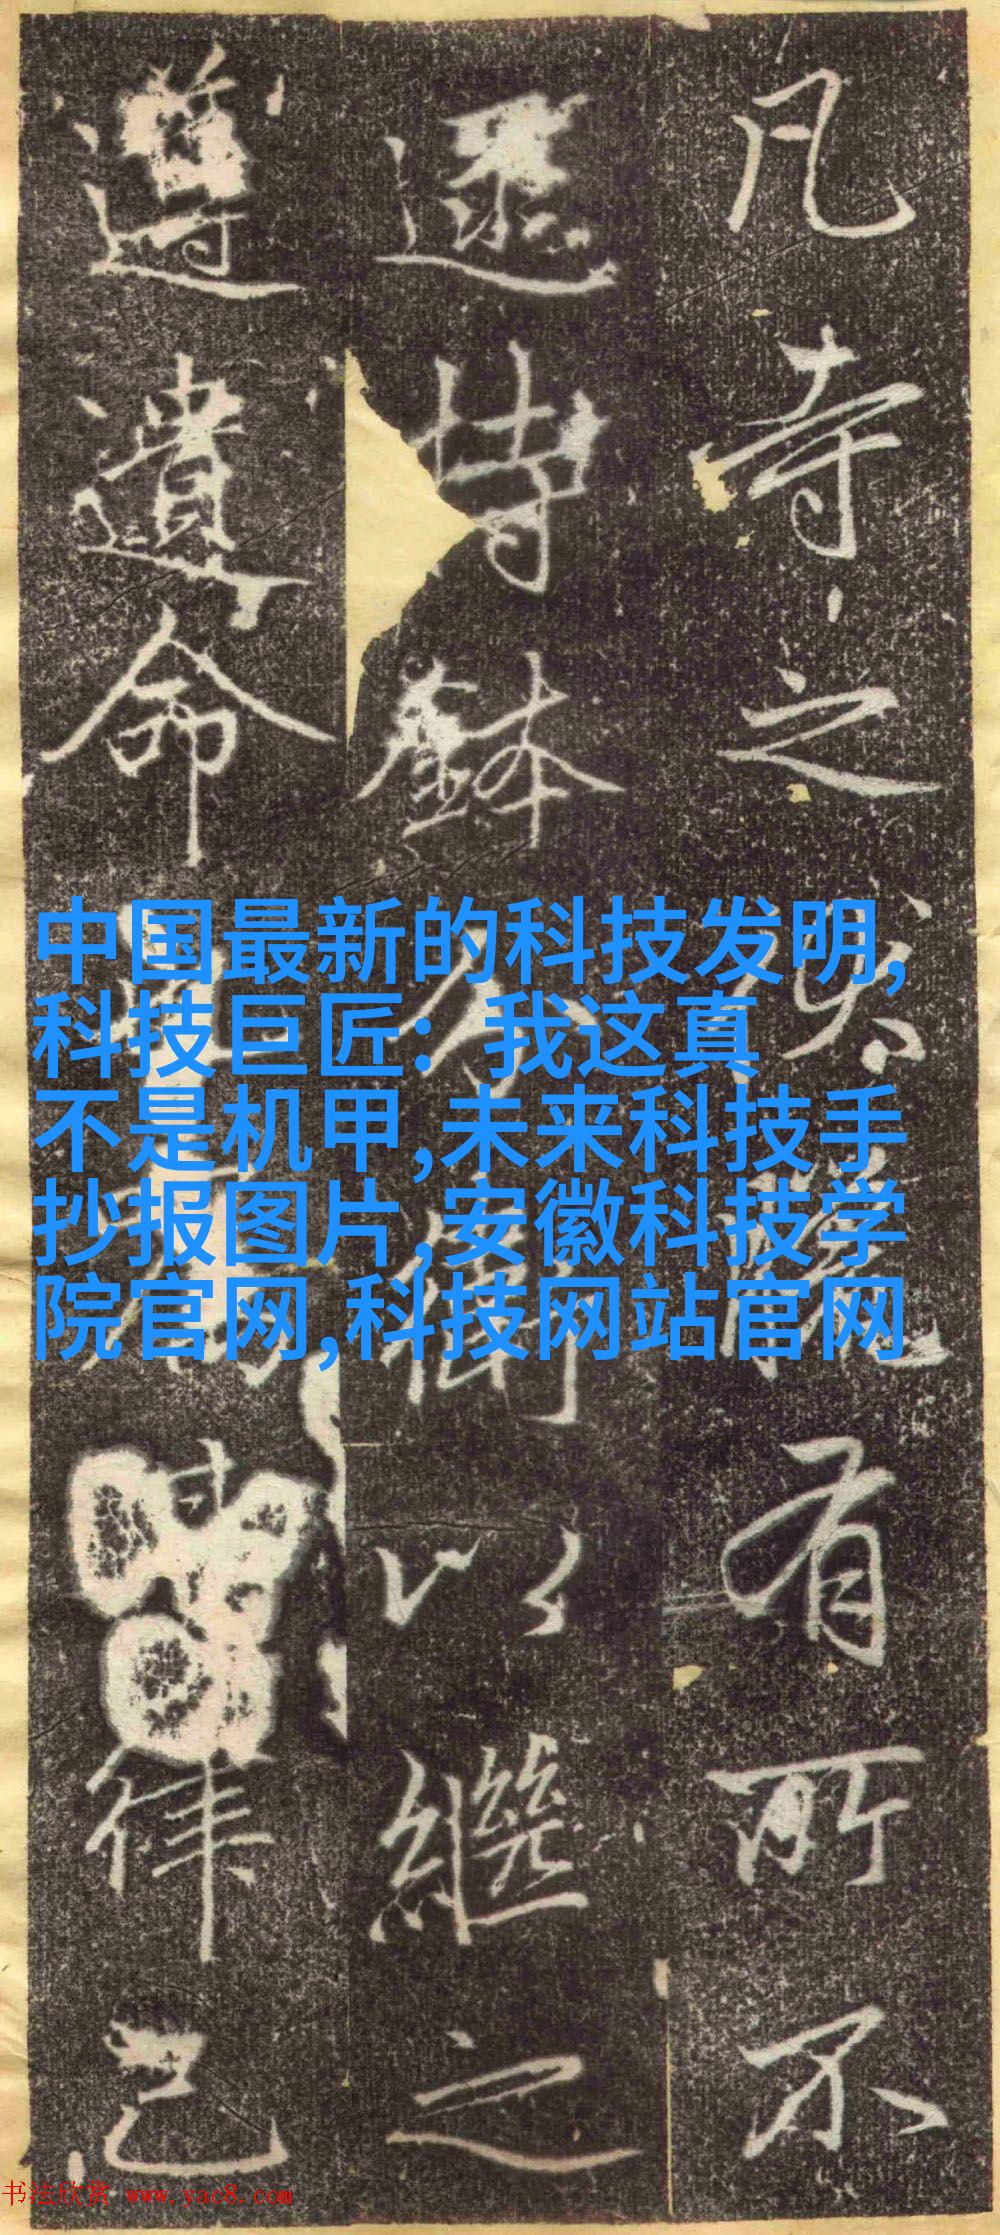 凡寺之有所不
持鉢以繼之
遺命律己
中国最新的科技发明,
科技巨匠：我这真
不是机甲,未来科技手
抄报图片,安徽科技学
院官网,科技网站官网
书法欣赏 www.yac8.com